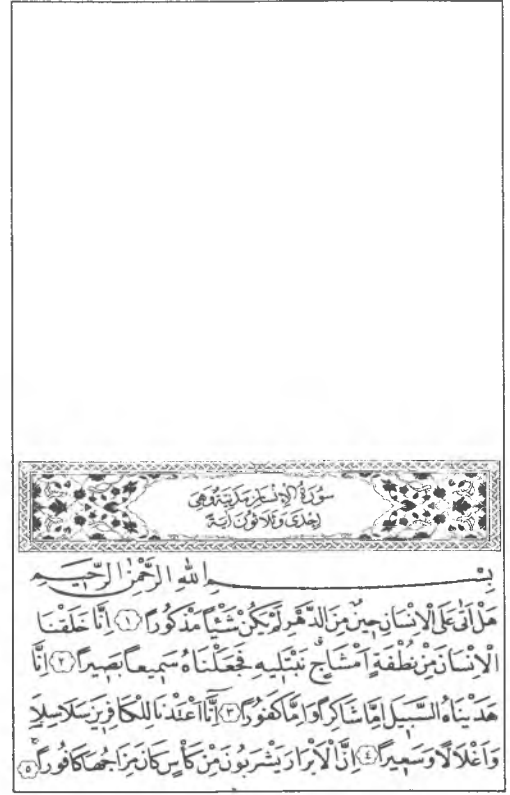 سُورَةُ الْاِنْسَانِ مَدَنِيَّةٌ وَهِيَ
اِحْدٰى وَثَلَاثُونَ اٰيَةً
بِسْمِ اللّٰهِ الرَّحْمٰنِ الرَّحِيمِ
هَلْ اَتٰى عَلَى الْاِنْسَانِ حِينٌ مِنَ الدَّهْرِ لَمْ يَكُنْ شَيْـًٔا مَذْكُورًا ﴿١﴾ اِنَّا خَلَقْنَا
الْاِنْسَانَ مِنْ نُطْفَةٍ اَمْشَاجٍۗ نَبْتَلِيهِ فَجَعَلْنَاهُ سَمِيعًا بَصِيرًا ﴿٢﴾ اِنَّا
هَدَيْنَاهُ السَّبِيلَ اِمَّا شَاكِرًا وَاِمَّا كَفُورًا ﴿٣﴾ اِنَّٓا اَعْتَدْنَا لِلْكَافِرِينَ سَلَاسِلَا۬
وَاَغْلَالًا وَسَعِيرًا ﴿٤﴾ اِنَّ الْاَبْرَارَ يَشْرَبُونَ مِنْ كَأْسٍ كَانَ مِزَاجُهَا كَافُورًاۚ ﴿٥﴾